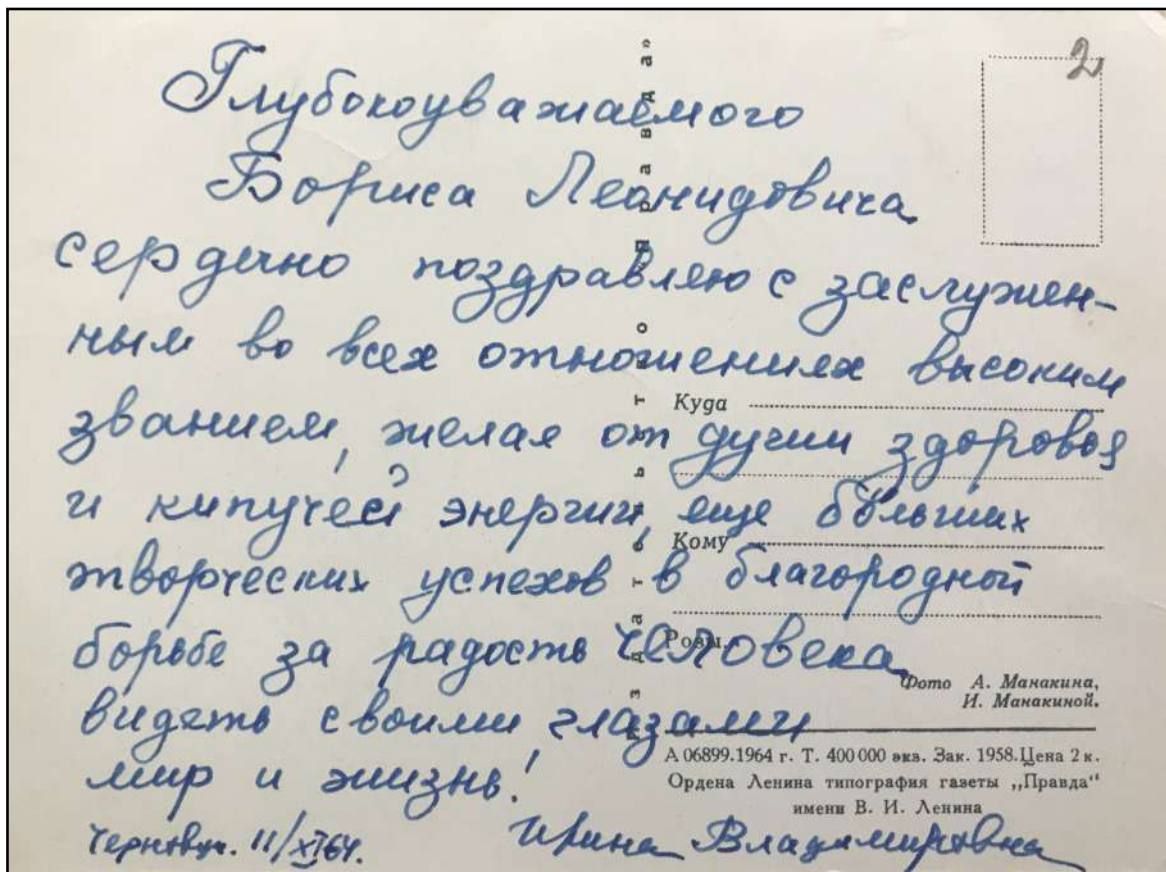 2
Глубокоуважаемого
Бориса Леонидовича
сердечно поздравляю с заслужен-
ным во всех отношениях высоким
званием, желая от души здоровья
и кипучей энергии, еще больших
творческих успехов в благородной
борьбе за радость человека
видеть своими глазами
мир и жизнь!
Черновцы. 11/XI64.
Ирина Владимировна
Издательство «Правда»
Куда
Кому
Розы.
Фото А. Манакина,
И. Манакиной.
А 06899.1964 г. Т. 400 000 экз. Зак. 1958. Цена 2 к.
Ордена Ленина типография газеты „Правда“
имени В. И. Ленина